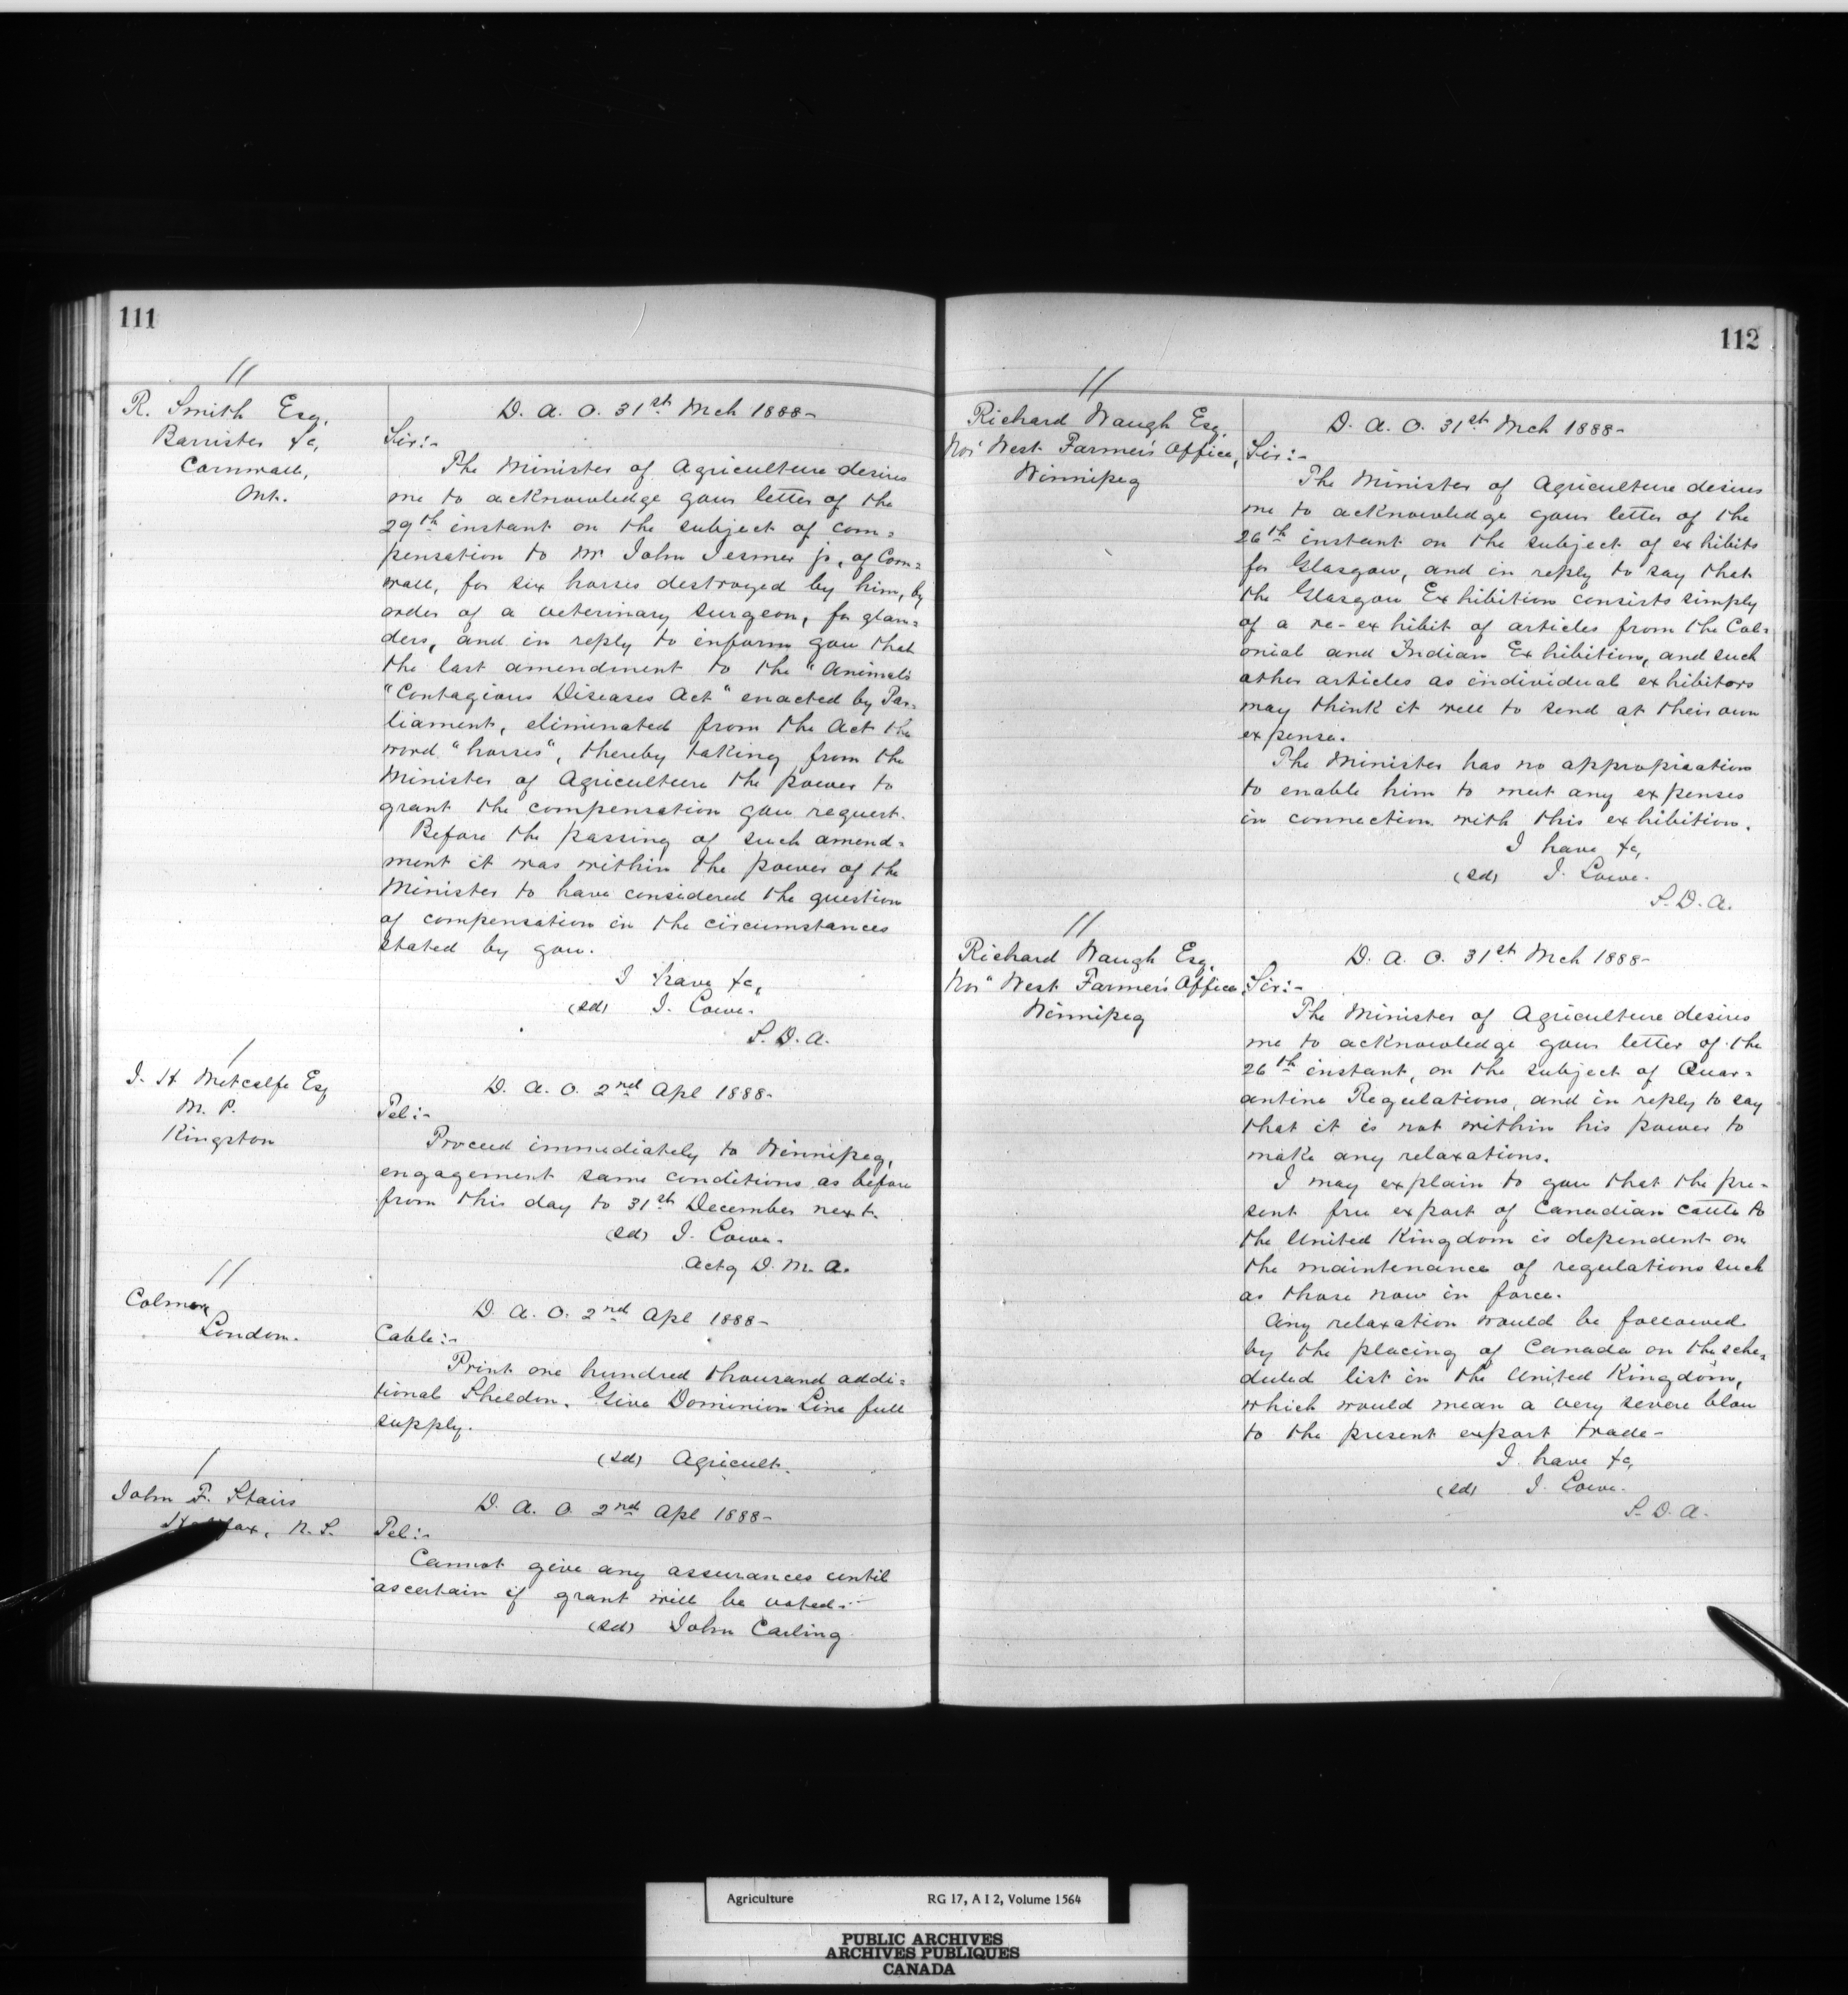 111
//
R. Smith Esq,
Barrister &c,
Cornwall,
Ont.
D. A. O. 31st Mch 1888-
Sir:-
The Minister of Agriculture desires
me to acknowledge your letter of the
29th instant on the subject of com=
pensation to Mr John jr, of Corn=
wall, for six horses destroyed by him, by
order of a veterinary surgeon, for glan=
ders, and in reply to inform you that
the last amendment to the "Animals
"Contagious Diseases Act" enacted by Par=
liament, eliminated from the Act the
word "horses", thereby taking from the
Minister of Agriculture the power to
grant the compensation you request.
Before the passing of such amend=
ment it was within the power of the
Minister to have considered the question
of compensation in the circumstances
stated by you.
I have &c,
(sd) J. Lowe.
S. D. A.
/
J. H. Metcalfe Esq
M. P.
Kingston
D. A. O. 2nd Apl 1888-
Tel:-
Proceed immediately to Winnipeg,
engagement same conditions as before
from this day to 31st December next.
(sd) J. Lowe.
Actg D. M. A.
//
Colmer,
London.
D. A. O. 2nd Apl 1888-
Cable:-
Print one hundred thousand addi=
tional Sheldon. Give Dominion Line full
supply.
(sd) Agricult.
/
John F. Stairs
Halifax, N.S.
D. A. O. 2nd Apl 1888-
Tel:-
Cannot give any assurances until
ascertain if grant will be voted.-
(sd) John Carling
112
//
Richard Waugh Esq.
Nor' West Farmer's Office,
Winnipeg
D. A. O. 31st Mch 1888-
Sir:-
The Minister of Agriculture desires
me to acknowledge your letter of the
26th instant on the subject of exhibits
for Glasgow, and in reply to say that
the Glasgow Exhibition consists simply
of a re-exhibit of articles from the Col=
onial and Indian Exhibition, and such
other articles as individual exhibitors
may think it well to send at their own
expense.
The Minister has no appropriation
to enable him to meet any expenses
in connection with this exhibition.
I have &c,
(sd) J. Lowe.
S. D. A.
//
Richard Waugh Esq,
Nor" West Farmer's Office
Winnipeg
D. A. O. 31st Mch 1888-
Sir:-
The Minister of Agriculture desires
me to acknowledge your letter of the
26th instant, on the subject of Quar=
antine Regulations, and in reply to say
that it is not within his power to
make any relaxations.
I may explain to you that the pre-
sent free export of Canadian cattle to
the United Kingdom is dependent on
the maintenance of regulations such
as those now in force.
Any relaxation would be followed
by the placing of Canada on the sche=
duled list in the United Kingdom,
which would mean a very severe blow
to the present export trade-
I have &c,
(sd) J. Lowe.
S. D. A.
Agriculture RG 17, A I 2, Volume 1564
PUBLIC ARCHIVES
ARCHIVES PUBLIQUES
CANADA